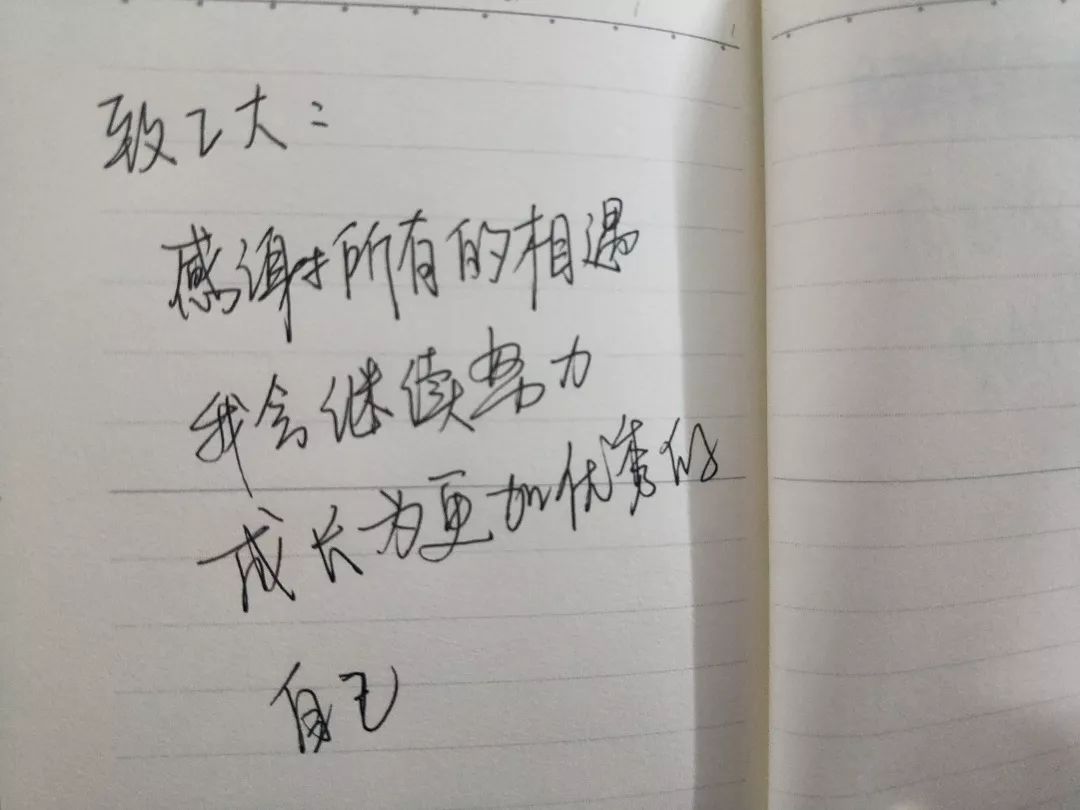 致乙大：
感谢所有的相遇
我会继续努力
成长为更加优秀的
自己